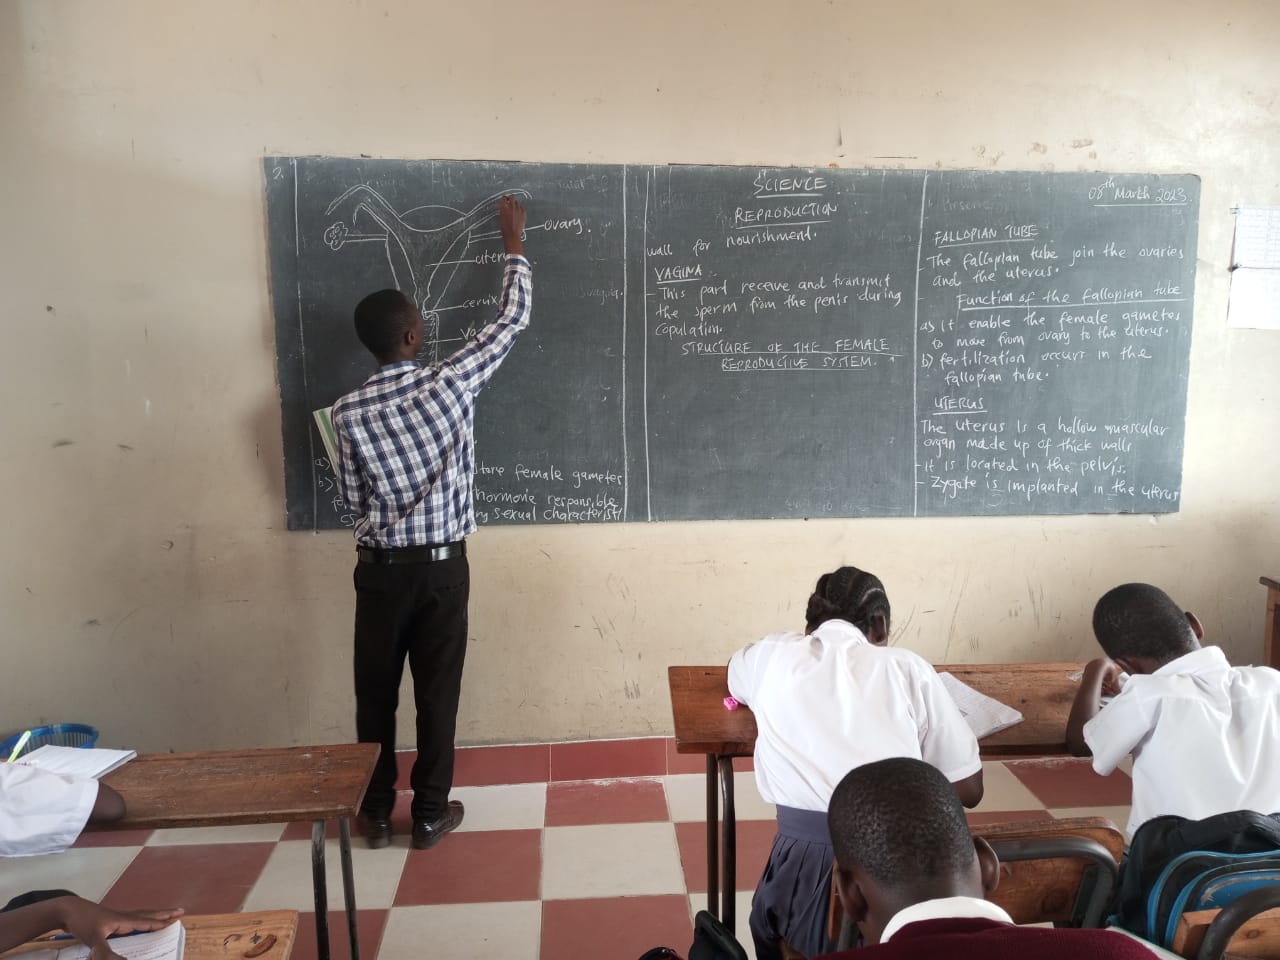 2.
ovary.
uteru
cervix
a)
store female gametes
b)
hormone responsible
sexual characterist
SCIENCE
REPRODUCTION
wall for nourishment.
VAGINA
- This part receive and transmit
the sperm from the penis during
copulation.
STRUCTURE OF THE FEMALE
REPRODUCTIVE SYSTEM.
08th March 2023
FALLOPIAN TUBE
- The fallopian tube join the ovaries
and the uterus.
Function of the fallopian tube
a) it enable the female gametes
to move from ovary to the uterus.
b) fertilization occurs in the
fallopian tube.
UTERUS
The uterus is a hollow muascular
organ made up of thick walls
- It is located in the pelvis.
- Zygate is implanted in the uterus